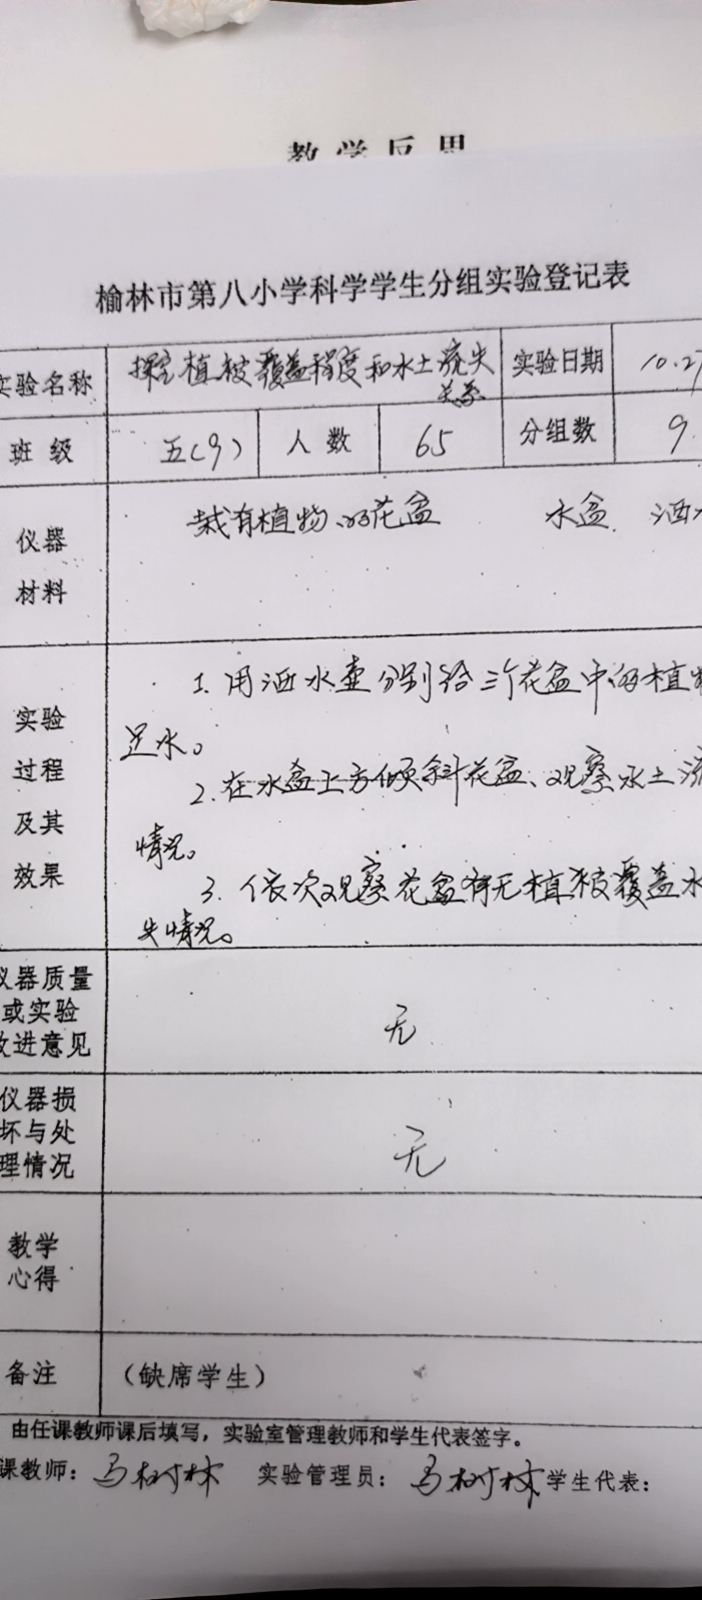 教学反思
榆林市第八小学科学学生分组实验登记表
实验名称 探究植被覆盖程度和水土流失关系 实验日期 10.27
班级 五(9) 人数 65 分组数 9
仪器材料 栽有植物的花盆 水盆 洒水
实验过程及其效果
1. 用洒水壶分别给三个花盆中的植物
足水。
2. 在水盆上方倾斜花盆、观察水土流
情况。
3. 依次观察花盆有无植被覆盖水
失情况。
仪器质量或实验改进意见 无
仪器损坏与处理情况 无
教学心得
备注 (缺席学生)
由任课教师课后填写，实验室管理教师和学生代表签字。
课教师：马树林 实验管理员：马树林 学生代表：